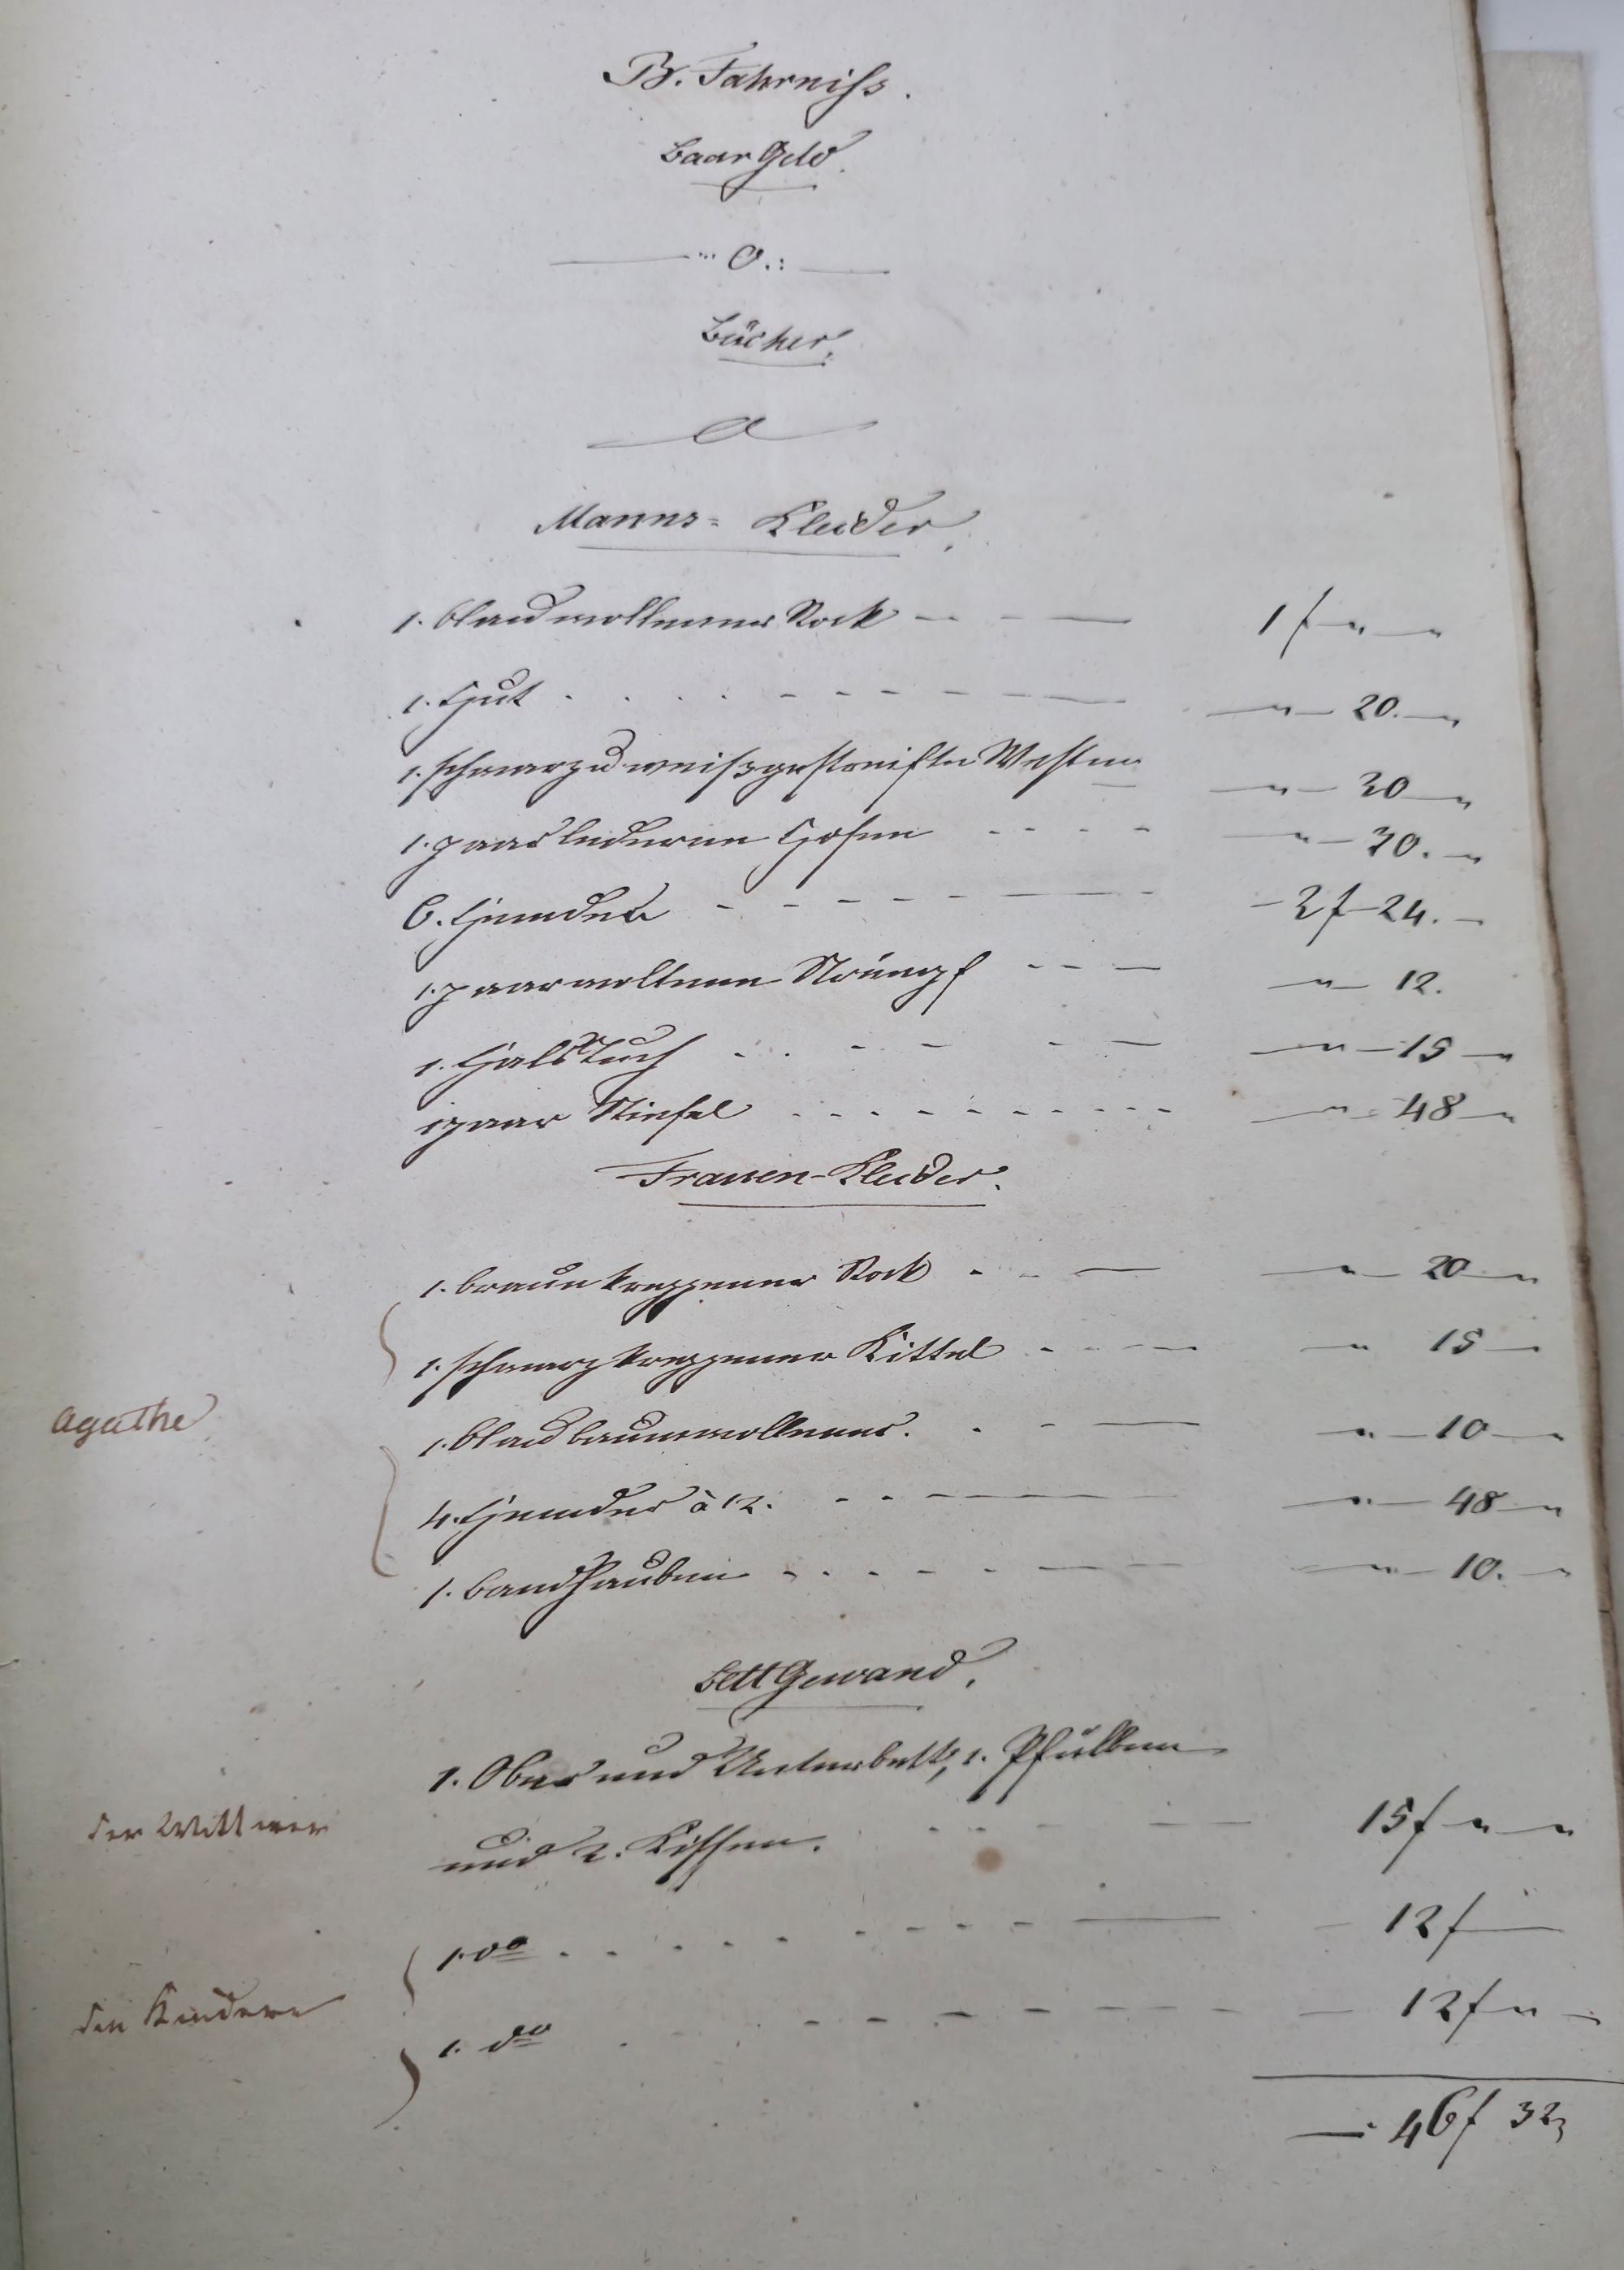 B. Fahrniss.
Baar Geld.
— 0. —
Bücher.
0
Manns= Kleider.
1. blau wollener Rock — 1 f „ „
1. Hut — „ 20. „
1. schwarz u weißgestreifte Westen „ 20 „
1. paar lederne Hosen — „ 30. „
6. Hemder — 2 f 24.
1. paar wollene Strümpf — „ 12.
1. Halstuch — „ 15 „
1 paar Stiefel — „ 48 „
Frauen-Kleider.
1. braun kreppener Rock — „ 20 „
1. schwarz kreppener Kittel — „ 15
Agathe
1. blau baumwollener. — „ 10 „
4. Hemder à 12. — „ 48 „
1. Bandhauben — „ 10.
Bett Gewand.
1. Ober und Unterbett, 1. Pfulben
der Wittwer
und 2. Kissen. — 15 f „ „
1. do — 12 f
den Kindern
1. do — 12 f „
46 f 32